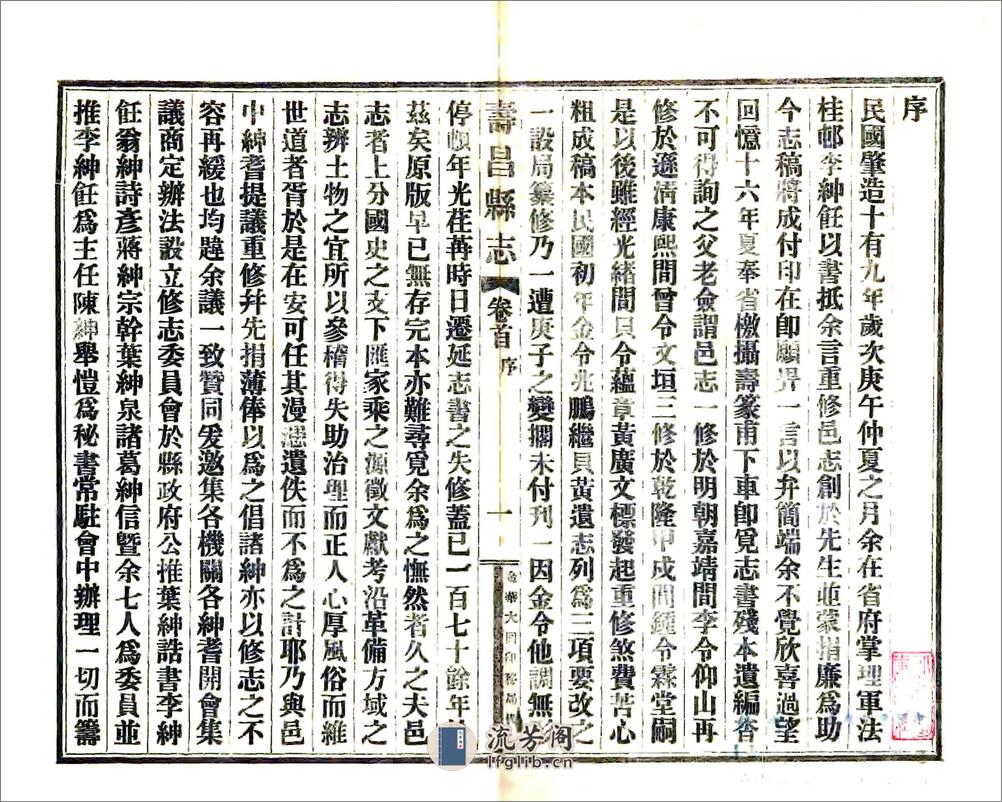 序
民國肇造十有九年歲次庚午仲夏之月余在省府掌理軍法
桂邨李紳飪以書抵余言重修邑志創於先生並蒙捐廉爲助
今志稿將成付印在卽願畀一言以弁簡端余不覺欣喜過望
回憶十六年夏奉省檄攝壽篆甫下車卽覓志書殘本遺編杳
不可得詢之父老僉謂邑志一修於明朝嘉靖間李令仰山再
修於遜淸康熙間曾令文垣三修於乾隆甲戌間鍾令霖堂嗣
是以後雖經光緒間貝令蘊章黃廣文標發起重修煞費苦心
粗成稿本民國初年金令兆鵬繼貝黃遺志列爲三項要改之
一設局纂修乃一遭庚子之變擱未付刊一因金令他調無
停頓年光荏苒時日遷延志書之失修蓋已一百七十餘年
茲矣原版早已無存完本亦難尋覓余爲之憮然者久之夫邑
志者上分國史之支下匯家乘之源徵文獻考沿革備方域之
志辨土物之宜所以參稽得失助治理而正人心厚風俗而維
世道者胥於是在安可任其漫漶遺佚而不爲之計耶乃與邑
中紳耆提議重修幷先捐薄俸以爲之倡諸紳亦以修志之不
容再緩也均韙余議一致贊同爰邀集各機關各紳耆開會集
議商定辦法設立修志委員會於縣政府公推葉紳誥書李紳
飪翁紳詩彥蔣紳宗幹葉紳泉諸葛紳信曁余七人爲委員並
推李紳飪爲主任陳紳舉愷爲秘書常駐會中辦理一切而籌
壽昌縣志
卷首
序
一
金華大同印務局
流芳阁
lfglib.cn